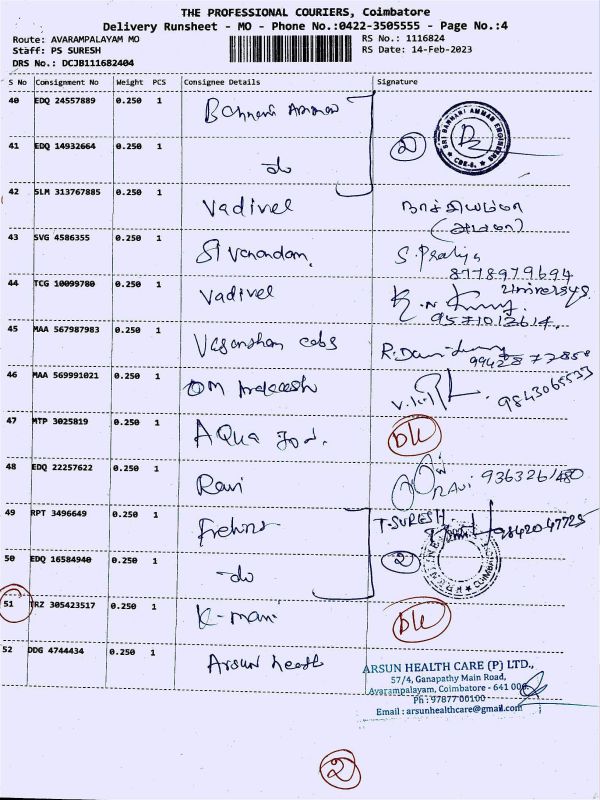 THE PROFESSIONAL COURIERS, Coimbatore
Delivery Runsheet - MO - Phone No.:0422-3505555 - Page No.:4
Route: AVARAMPALAYAM MO
RS No.: 1116824
Staff: PS SURESH
RS Date: 14-Feb-2023
DRS No.: DCJB111682404
S No Consignment No Weight PCS Consignee Details Signature
40 EDQ 24557889 0.250 1
SRI BANNARI AMMAN ENGINEERS CBE-6
41 EDQ 14932664 0.250 1 do 2
42 SLM 313767885 0.250 1 Vadivel
43 SVG 4586355 0.250 1 Sivanandam.
8778979694
44 TCG 10099780 0.250 1 Vadivel
45 MAA 567987983 0.250 1
46 MAA 569991021 0.250 1 9843065533
47 MTP 3025819 0.250 1 AQua
48 EDQ 22257622 0.250 1 Ravi RAVI
49 RPT 3496649 0.250 1 T-SURESH 9842047725
50 EDQ 16584940 0.250 1 do 2
51 TRZ 305423517 0.250 1 K-mani
52 DDG 4744434 0.250 1 Arsun
ARSUN HEALTH CARE (P) LTD.,
57/4, Ganapathy Main Road,
Avarampalayam, Coimbatore - 641 006
Ph : 97877 00100
Email : arsunhealthcare@gmail.com
2